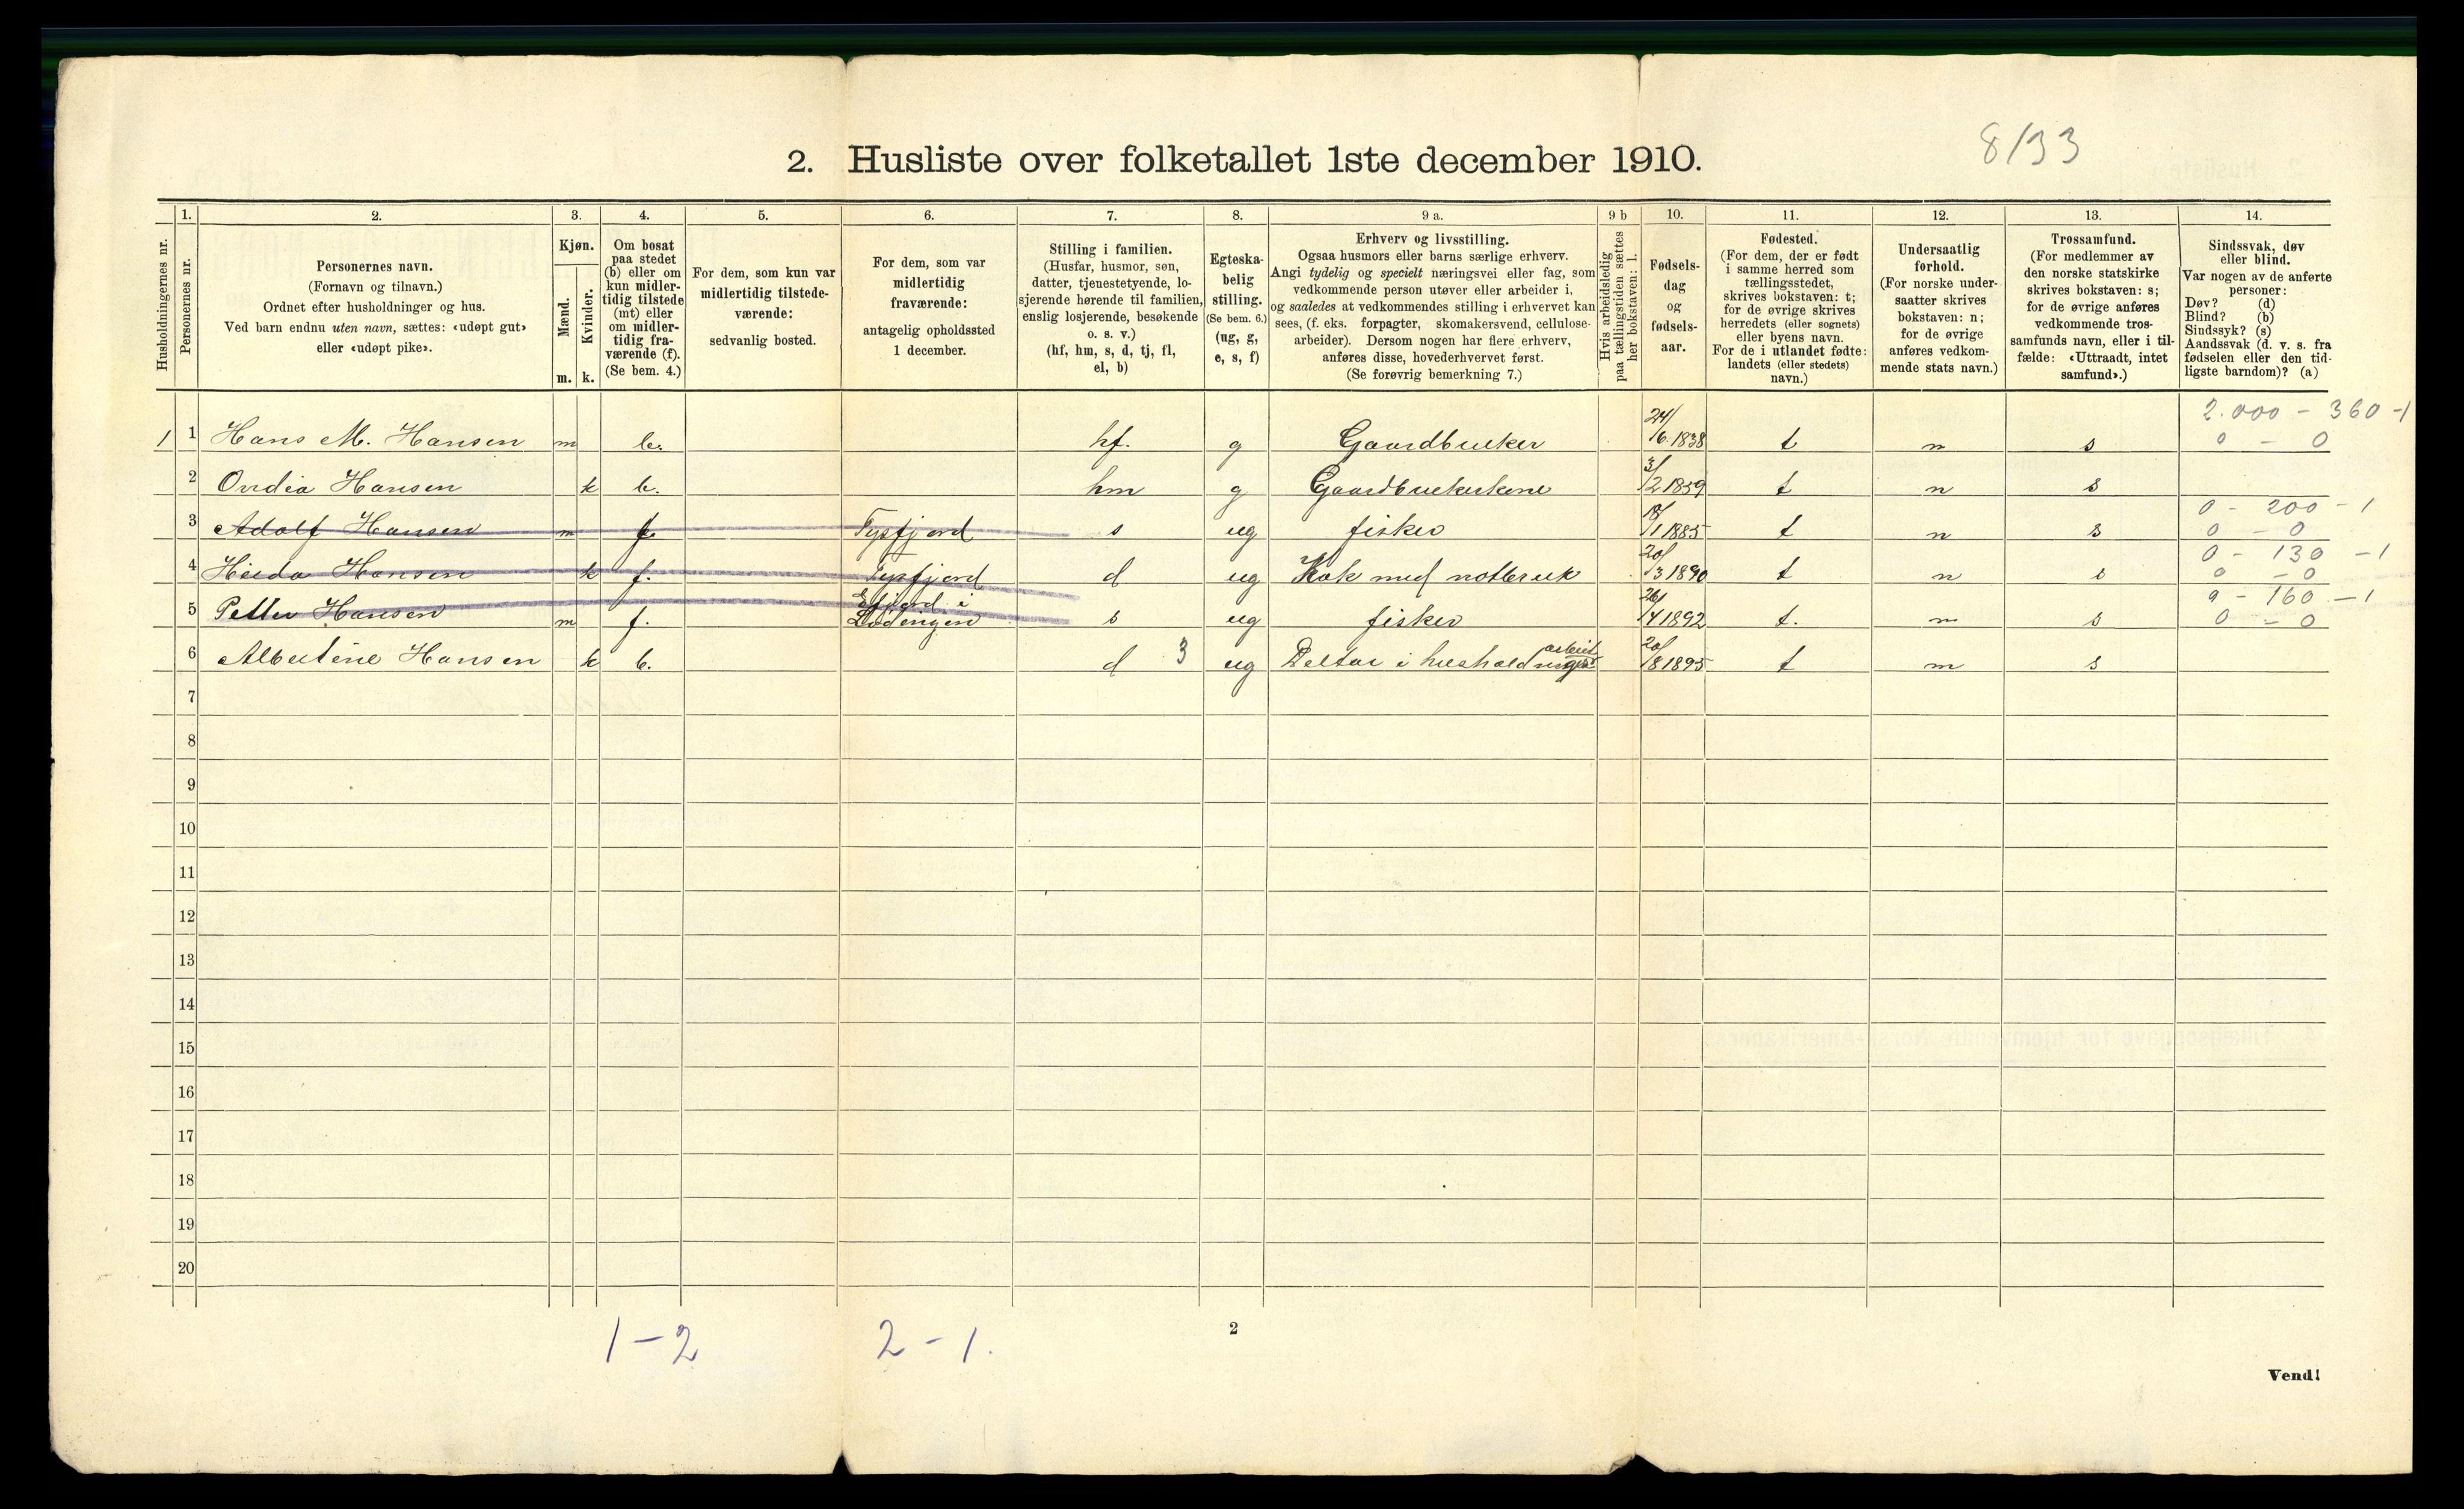 8/33
2. Husliste over folketallet 1ste december 1910.
1. 2. 3. 4. 5. 6. 7. 8. 9 a. 9 b 10. 11. 12. 13. 14.
Husholdningernes nr.
Personernes nr.
Personernes navn.
(Fornavn og tilnavn.)
Ordnet efter husholdninger og hus.
Ved barn endnu uten navn, sættes: «udøpt gut»
eller «udøpt pike».
Kjøn.
Mænd.
Kvinder.
m. k.
Om bosat
paa stedet
(b) eller om
kun midler-
tidig tilstede
(mt) eller
om midler-
tidig fra-
værende (f).
(Se bem. 4.)
For dem, som kun var
midlertidig tilstede-
værende:
sedvanlig bosted.
For dem, som var
midlertidig
fraværende:
antagelig opholdssted
1 december.
Stilling i familien.
(Husfar, husmor, søn,
datter, tjenestetyende, lo-
sjerende hørende til familien,
enslig losjerende, besøkende
o. s. v.)
(hf, hm, s, d, tj, fl,
el, b)
Egteska-
belig
stilling.
(Se bem. 6.)
(ug, g,
e, s, f)
Erhverv og livsstilling.
Ogsaa husmors eller barns særlige erhverv.
Angi tydelig og specielt næringsvei eller fag, som
vedkommende person utøver eller arbeider i,
og saaledes at vedkommendes stilling i erhvervet kan
sees, (f. eks. forpagter, skomakersvend, cellulose-
arbeider). Dersom nogen har flere erhverv,
anføres disse, hovederhvervet først.
(Se forøvrig bemerkning 7.)
Hvis arbeidsledig
paa tællingstiden sættes
her bokstaven: l.
Fødsels-
dag
og
fødsels-
aar.
Fødested.
(For dem, der er født
i samme herred som
tællingsstedet,
skrives bokstaven: t;
for de øvrige skrives
herredets (eller sognets)
eller byens navn.
For de i utlandet fødte:
landets (eller stedets)
navn.)
Undersaatlig
forhold.
(For norske under-
saatter skrives
bokstaven: n;
for de øvrige
anføres vedkom-
mende stats navn.)
Trossamfund.
(For medlemmer av
den norske statskirke
skrives bokstaven: s;
for de øvrige anføres
vedkommende tros-
samfunds navn, eller i til-
fælde: «Uttraadt, intet
samfund».)
Sindssvak, døv
eller blind.
Var nogen av de anførte
personer:
Døv? (d)
Blind? (b)
Sindssyk? (s)
Aandssvak (d. v. s. fra
fødselen eller den tid-
ligste barndom)? (a)
2.000 - 360 -1
1 1 Hans M. Hansen m b. hf. g Gaardbruker 24/6 1838 t n s 0 - 0
2 Ovidia Hansen k b. hm g Gaardbrukerkone 3/2 1859 t n s
0 - 200 - 1
3 Adolf Hansen m f. Tysfjord s ug fisker 1885 t n s 0 - 0
0 - 130 - 1
4 Hilda Hansen k f. Tysfjord d ug Kok med notbruk 20/3 1890 t n s 0 - 0
0 - 160 - 1
5 Petter Hansen m f. Efjord i Lødingen s ug fisker 26/4 1892 t. n s 0 - 0
6 Albertine Hansen k b. d 3 ug Deltar i husholdningsarbeid 20/8 1895 t n s
7
8
9
10
11
12
13
14
15
16
17
18
19
20
1-2 2-1.
2
Vend!